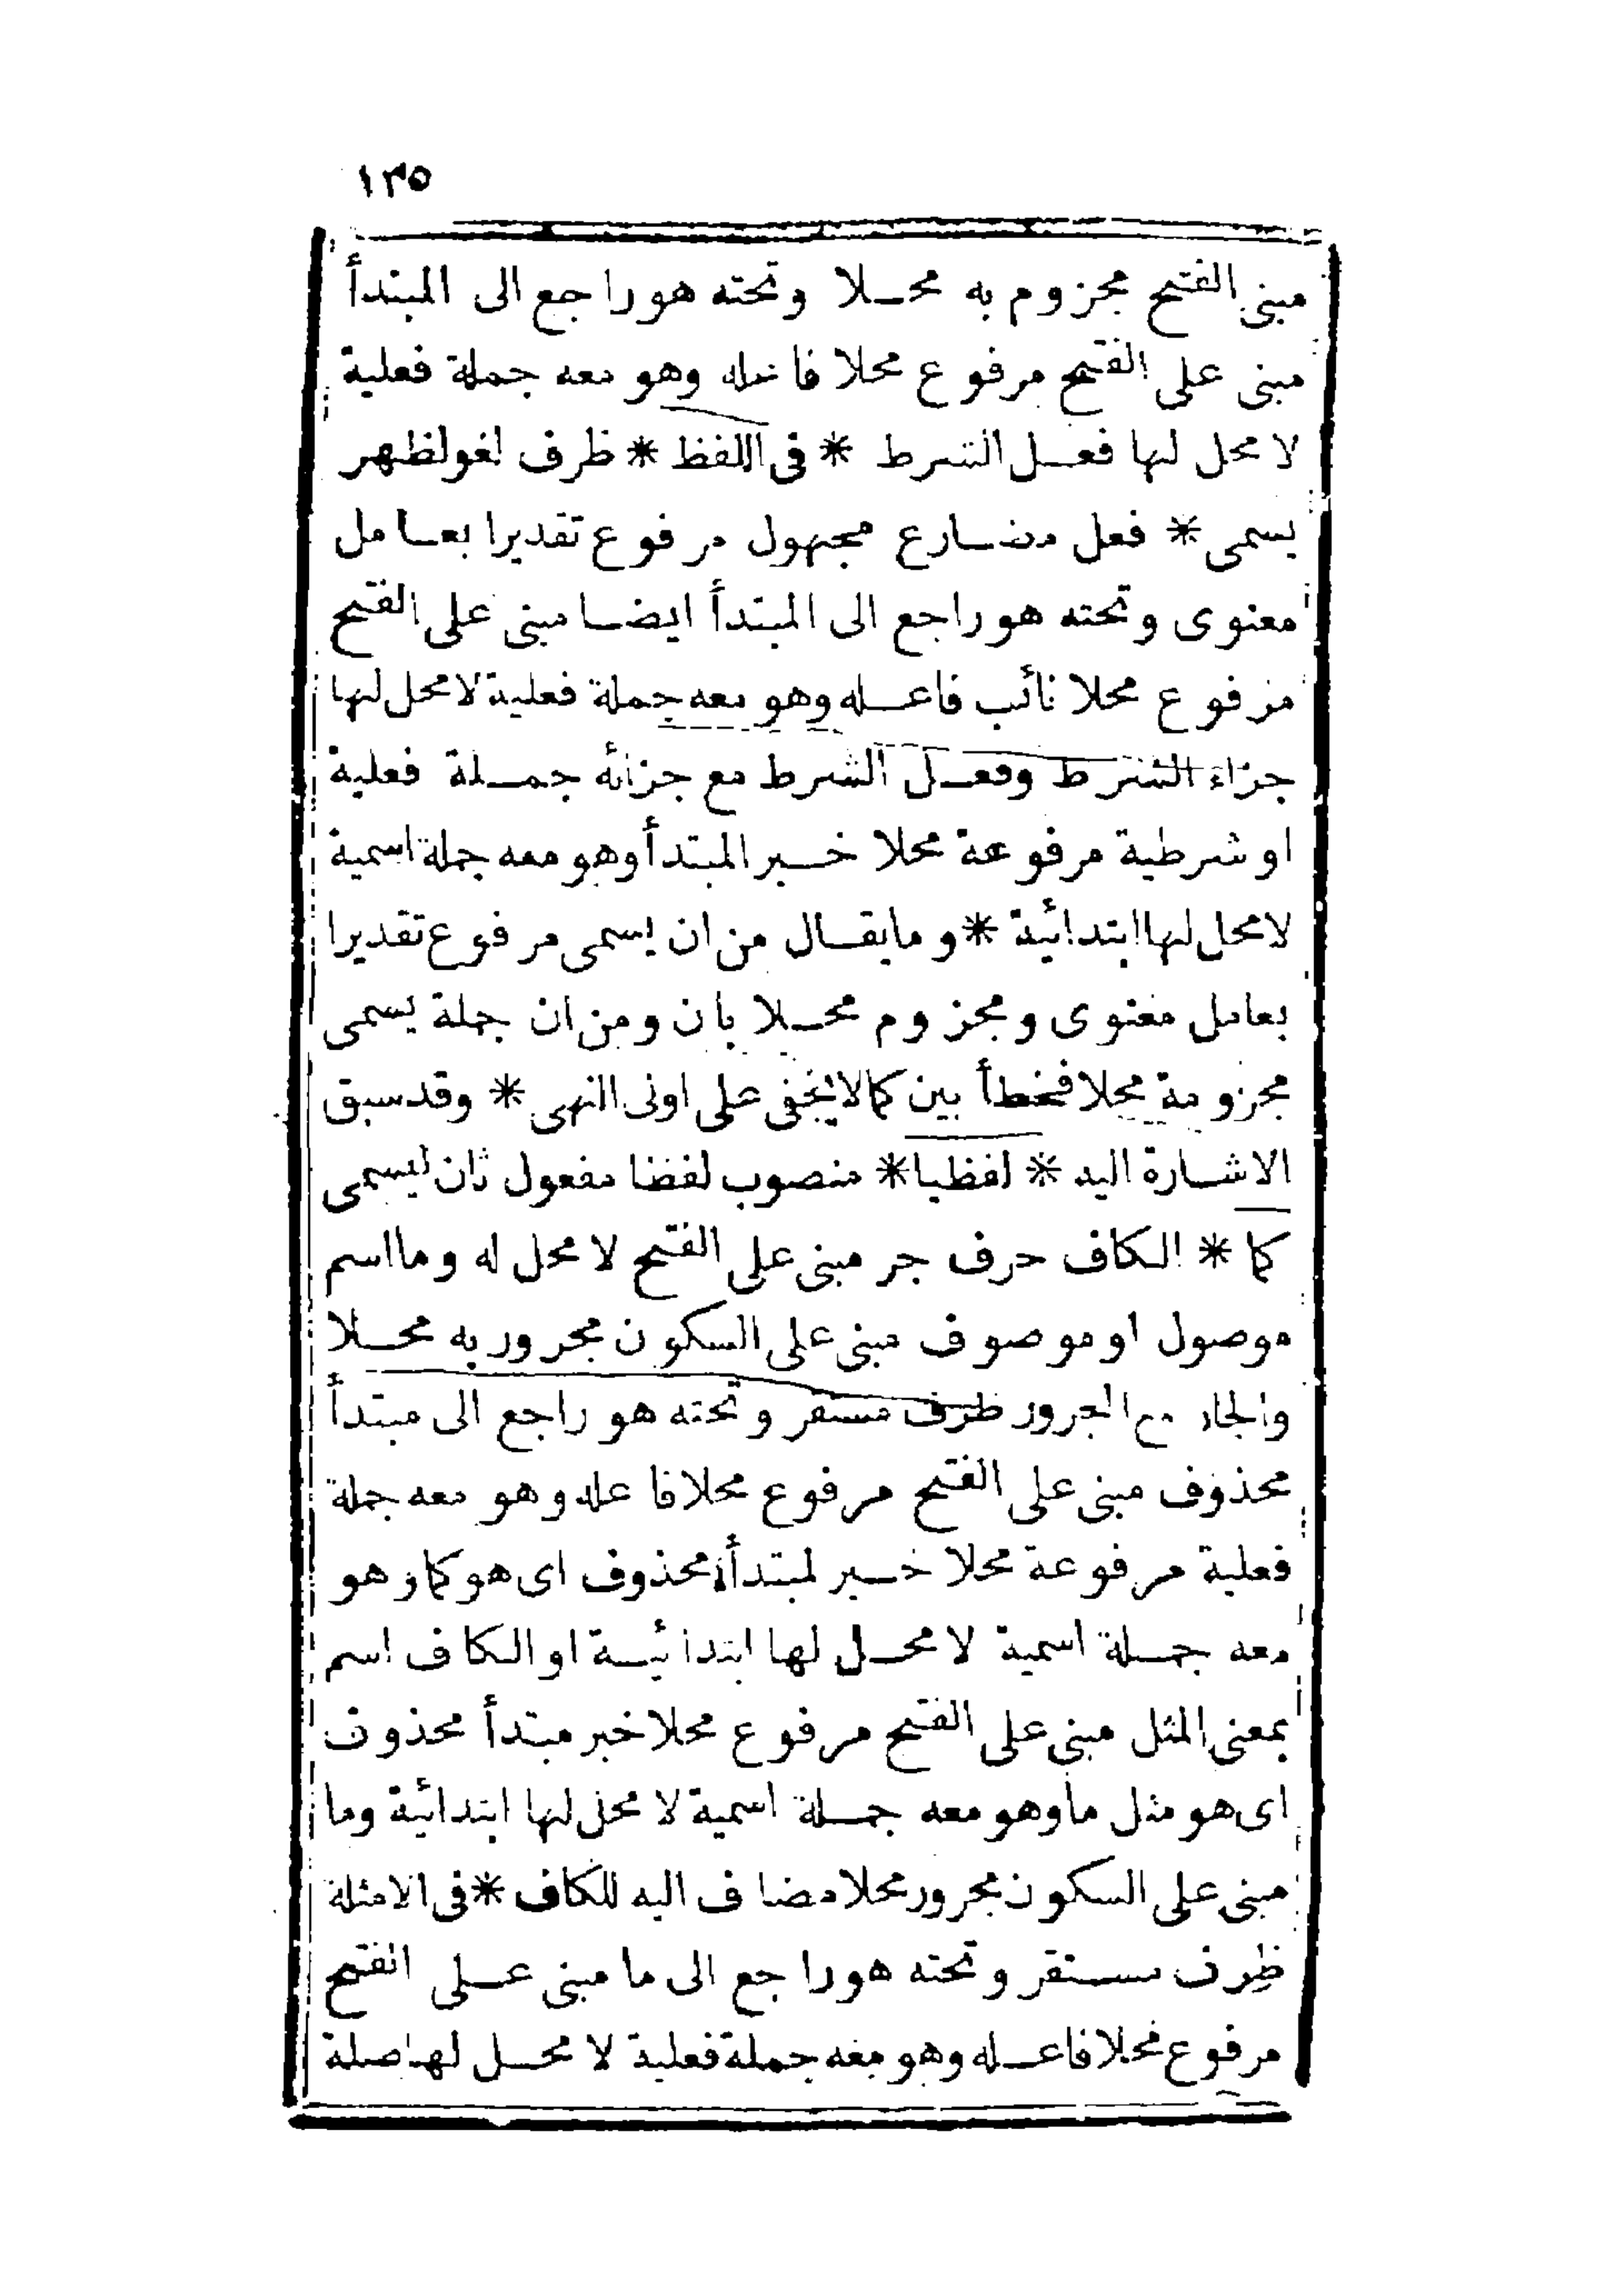 ١٣٥
مبنى الفتح مجزوم به محلا وتحته هو راجع الى المبتدأ
مبنى على الفتح مرفوع محلا فاعله وهو معه جملة فعلية
لا محل لها فعل الشرط * فى اللفظ * ظرف لغو لظهر
يسمى * فعل مضارع مجهول مرفوع تقديرا بعامل
معنوى وتحته هو راجع الى المبتدأ ايضا مبنى على الفتح
مرفوع محلا نائب فاعله وهو معه جملة فعلية لا محل لها
جزاء الشرط وفعل الشرط مع جزائه جملة فعلية
او شرطية مرفوعة محلا خبر المبتدأ وهو معه جملة اسمية
لا محل لها ابتدائية * وما يقال من ان يسمى مرفوع تقديرا
بعامل معنوى ومجزوم محلا بان ومن ان جملة يسمى
مجزومة محلا فخطأ بين كما لا يخفى على اولى النهى * وقد سبق
الاشارة اليه * لفظيا * منصوب لفظا مفعول ثان ليسمى
كما * الكاف حرف جر مبنى على الفتح لا محل له وما اسم
موصول او موصوف مبنى على السكون مجرور به محلا
والجار مع المجرور ظرف مستقر وتحته هو راجع الى مبتدأ
محذوف مبنى على الفتح مرفوع محلا فاعله وهو معه جملة
فعلية مرفوعة محلا خبر لمبتدأ محذوف اى هو كما وهو
معه جملة اسمية لا محل لها ابتدائية او الكاف اسم
بمعنى المثل مبنى على الفتح مرفوع محلا خبر مبتدأ محذوف
اى هو مثل ما وهو معه جملة اسمية لا محل لها ابتدائية وما
مبنى على السكون مجرور محلا مضاف اليه للكاف * فى الامثلة
ظرف مستقر وتحته هو راجع الى ما مبنى على الفتح
مرفوع محلا فاعله وهو معه جملة فعلية لا محل لها صلة